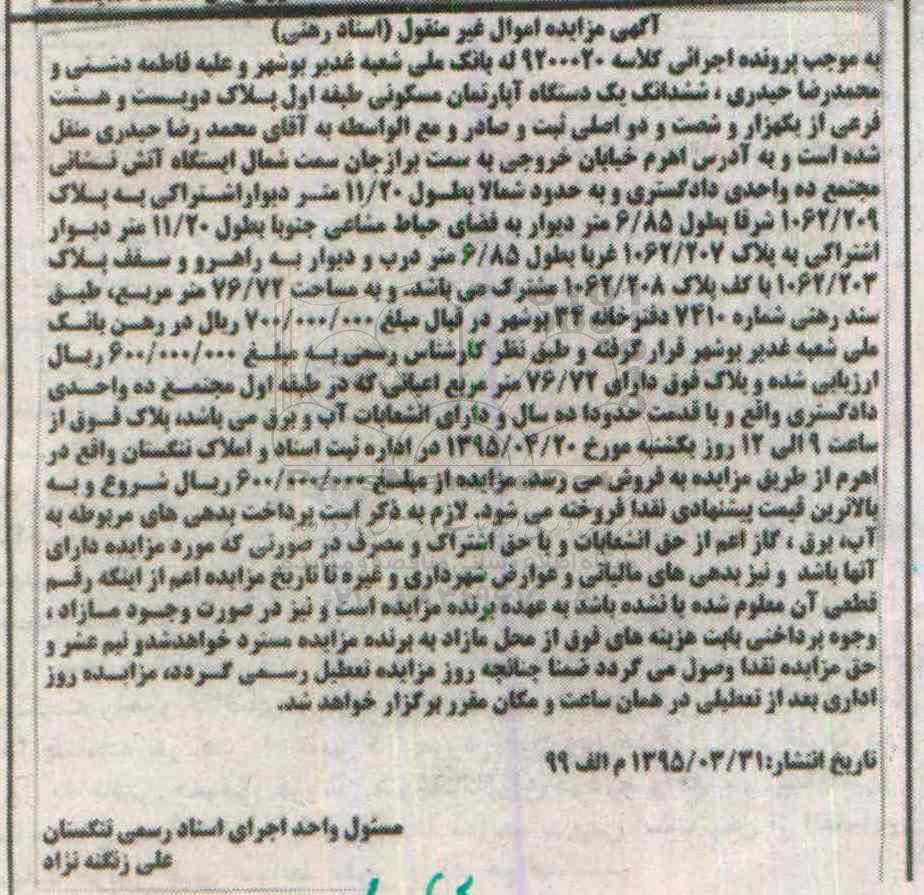 آگهی مزایده اموال غیر منقول (اسناد رهنی)
به موجب پرونده اجرائی کلاسه ۹۲۰۰۰۲۰ له بانک ملی شعبه غدیر بوشهر و علیه فاطمه دشتی و
محمدرضا حیدری ، ششدانگ یک دستگاه آپارتمان مسکونی طبقه اول پلاک دویست و هشت
فرعی از یکهزار و شصت و دو اصلی ثبت و صادر و مع الواسطه به آقای محمد رضا حیدری منتقل
شده است و به آدرس اهرم خیابان خروجی به سمت برازجان سمت شمال ایستگاه آتش نشانی
مجتمع ده واحدی دادگستری و به حدود شمالا بطول ۱۱/۲۰ متر دیواراشتراکی به پلاک
۱۰۶۲/۲۰۹ شرقا بطول ۶/۸۵ متر دیوار به فضای حیاط مشاعی جنوبا بطول ۱۱/۲۰ متر دیوار
اشتراکی به پلاک ۱۰۶۲/۲۰۷ غربا بطول ۶/۸۵ متر درب و دیوار به راهرو و سقف پلاک
۱۰۶۲/۲۰۳ با کف پلاک ۱۰۶۲/۲۰۸ مشترک می باشد. و به مساحت ۷۶/۷۲ متر مربع، طبق
سند رهنی شماره ۷۴۱۰ دفترخانه ۳۴ بوشهر در قبال مبلغ ۷۰۰/۰۰۰/۰۰۰ ریال در رهن بانک
ملی شعبه غدیر بوشهر قرار گرفته و طبق نظر کارشناس رسمی به مبلغ ۶۰۰/۰۰۰/۰۰۰ ریال
ارزیابی شده و پلاک فوق دارای ۷۶/۷۲ متر مربع اعیانی که در طبقه اول مجتمع ده واحدی
دادگستری واقع و با قدمت حدودا ده سال و دارای انشعابات آب و برق می باشد، پلاک فوق از
ساعت ۹ الی ۱۲ روز یکشنبه مورخ ۱۳۹۵/۰۴/۲۰ در اداره ثبت اسناد و املاک تنگستان واقع در
اهرم از طریق مزایده به فروش می رسد. مزایده از مبلغ ۶۰۰/۰۰۰/۰۰۰ ریال شروع و به
بالاترین قیمت پیشنهادی نقدا فروخته می شود. لازم به ذکر است پرداخت بدهی های مربوطه به
آب، برق ، گاز اعم از حق انشعابات و یا حق اشتراک و مصرف در صورتی که مورد مزایده دارای
آنها باشد و نیز بدهی های مالیاتی و عوارض شهرداری و غیره تا تاریخ مزایده اعم از اینکه رقم
قطعی آن معلوم شده یا نشده باشد به عهده برنده مزایده است و نیز در صورت وجود مازاد ،
وجوه پرداختی بابت هزینه های فوق از محل مازاد به برنده مزایده مسترد خواهدشدو نیم عشر و
حق مزایده نقدا وصول می گردد ضمنا چنانچه روز مزایده تعطیل رسمی گردد، مزایده روز
اداری بعد از تعطیلی در همان ساعت و مکان مقرر برگزار خواهد شد.
تاریخ انتشار:۱۳۹۵/۰۳/۳۱ م الف ۹۹
مسئول واحد اجرای اسناد رسمی تنگستان
علی زنگنه نژاد